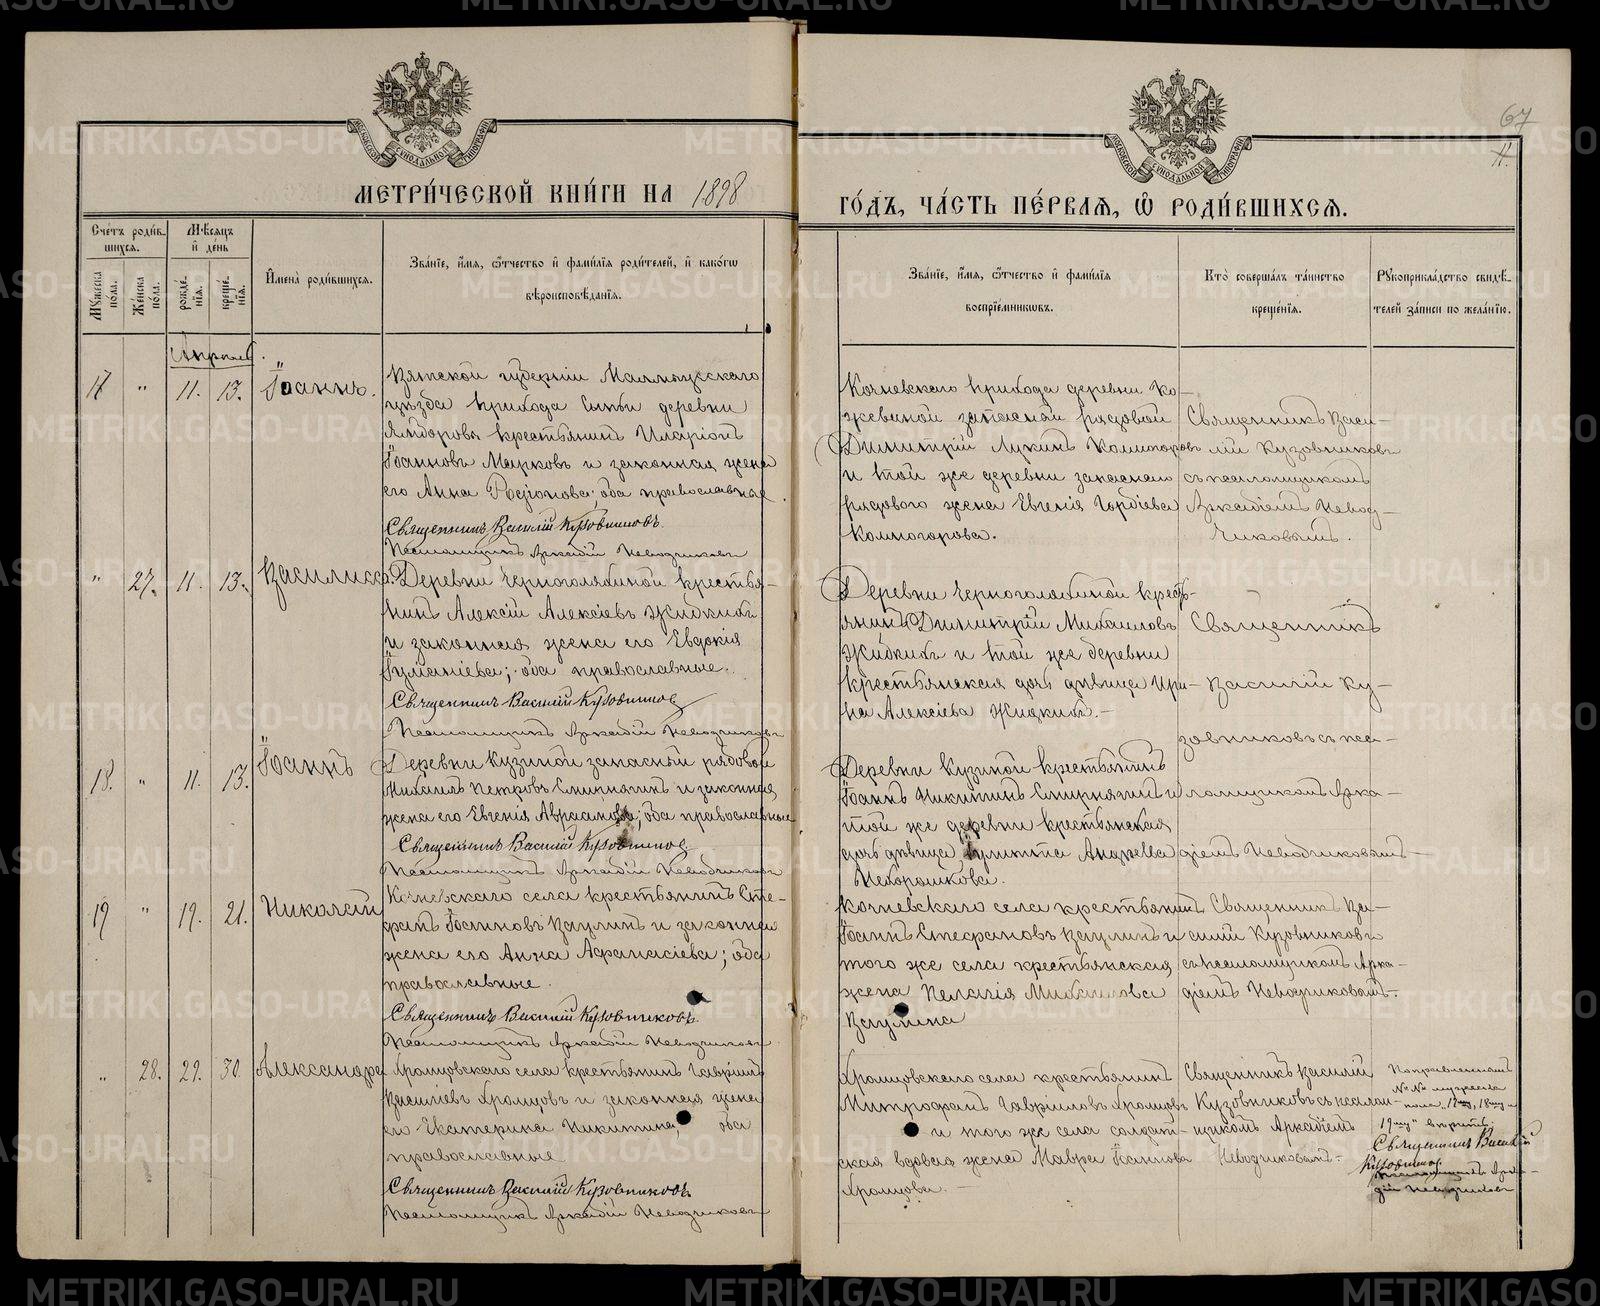 МЕТРИ́ЧЕСКОЙ КНИ́ГИ НА 1898
ГО́ДЪ, ЧА́СТЬ ПЕ́РВАѦ, Ѡ҆ РОДИ́ВШИХСѦ.
67
Сче́тъ роди́в-
шихсѧ.
Мѣ́сѧцъ
и҆ де́нь
Мꙋ́жеска
по́ла.
Же́нска
по́ла.
рожде́-
нїѧ.
креще́-
нїѧ.
И҆мена̀ роди́вшихсѧ.
Зва́нїе, и҆́мѧ, ѻ҆́тчество и҆ фами́лїѧ роди́телей, и҆ како́гѡ
вѣроисповѣ́данїѧ.
Зва́нїе, и҆́мѧ, ѻ҆́тчество и҆ фами́лїѧ
воспрїе́мниковъ.
Кто̀ соверша́лъ та́инство
креще́нїѧ.
Рꙋкоприкла́дство свидѣ́-
телей за́писи по жела́нїю.
Апрѣль.
17 " 11. 13. Іоаннъ.
Вятской губерніи Малмыжскаго
уѣзда прихода деревни
крестьянинъ Иларіонъ
Іоанновъ Марковъ и законная жена
его Анна Родіонова; оба православные.
Священникъ Василій Кузовниковъ
Псаломщикъ Аркадій Неводчиковъ
Кочневскаго прихода деревни Ко-
жевиной запасной рядовой
Димитрій Лукинъ Колмогоровъ
и той же деревни запаснаго
рядового жена Евгенія Гордіева
Колмогорова.
Священникъ Васи-
лій Кузовниковъ
съ псаломщикомъ
Аркадіемъ Невод-
чиковымъ.
" 27. 11. 13. Василисса.
Деревни Черноголяшиной крестья-
нинъ Алексій Алексіевъ Жидкихъ
и законная жена его Евдокія
оба православные.
Священникъ Василій Кузовниковъ
Псаломщикъ Аркадій Неводчиковъ
Деревни Черноголяшиной кресть-
янинъ Димитрій Михаиловъ
Жидкихъ и той же деревни
крестьянская дочь дѣвица Ири-
на Алексіева Жидкихъ.
Священникъ
Василій Ку-
зовниковъ съ пса-
18. " 11. 13. Іоаннъ
Деревни Кузиной запасный рядовой
Михаилъ Петровъ Смирнягинъ и законная
жена его Евгенія Авраамова; оба православные
Священникъ Василій Кузовниковъ
Псаломщикъ Аркадій Неводчиковъ
Деревни Кузиной крестьянинъ
Іоаннъ Никитинъ Смирнягинъ и
той же деревни крестьянская
дочь дѣвица Іулитта Андреева
ломщикомъ Арка-
діемъ Неводчиковымъ-
19 " 19. 21. Николай
Кочневскаго села крестьянинъ Сте-
фанъ Іоанновъ Ваулинъ и законная
жена его Анна Афанасіева; оба
православные.
Священникъ Василій Кузовниковъ
Псаломщикъ Аркадій Неводчиковъ
Кочневскаго села крестьянинъ
Іоаннъ Стефановъ Ваулинъ и
того же села крестьянская
жена Пелагія Михаилова
Ваулина
Священникъ Ва-
силій Кузовниковъ
съ псаломщикомъ Арка-
діемъ Неводчиковымъ.
" 28. 29. 30. Александра
Храмцовскаго села крестьянинъ Гавріилъ
Василіевъ Храмцовъ и законная жена
его Екатерина Никитина, оба
православные
Священникъ Василій Кузовниковъ
Псаломщикъ Аркадій Неводчиковъ
Храмцовскаго села крестьянинъ
Митрофанъ Гавріиловъ Храмцовъ
и того же села солдат-
ская вдовая жена Мавра Іоаннова
Храмцова.
Священникъ Василій
Кузовниковъ съ псалом-
щикомъ Аркадіемъ
Неводчиковымъ.
Поправленнымъ
№№ мужеска
пола "17му, 18му и
19му" вѣрить.
Священникъ Василій
Кузовниковъ
Псаломщикъ Арка-
дій Неводчиковъ
METRIKI.GASO-URAL.RU